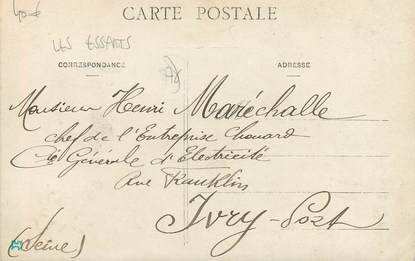 CARTE POSTALE
LES ESSARTS
CORRESPONDANCE
ADRESSE
Monsieur Henri Maréchalle
chef de l'Entreprise Chouard
Cie Générale d'Electricité
Rue Franklin
Ivry-Port
(Seine)